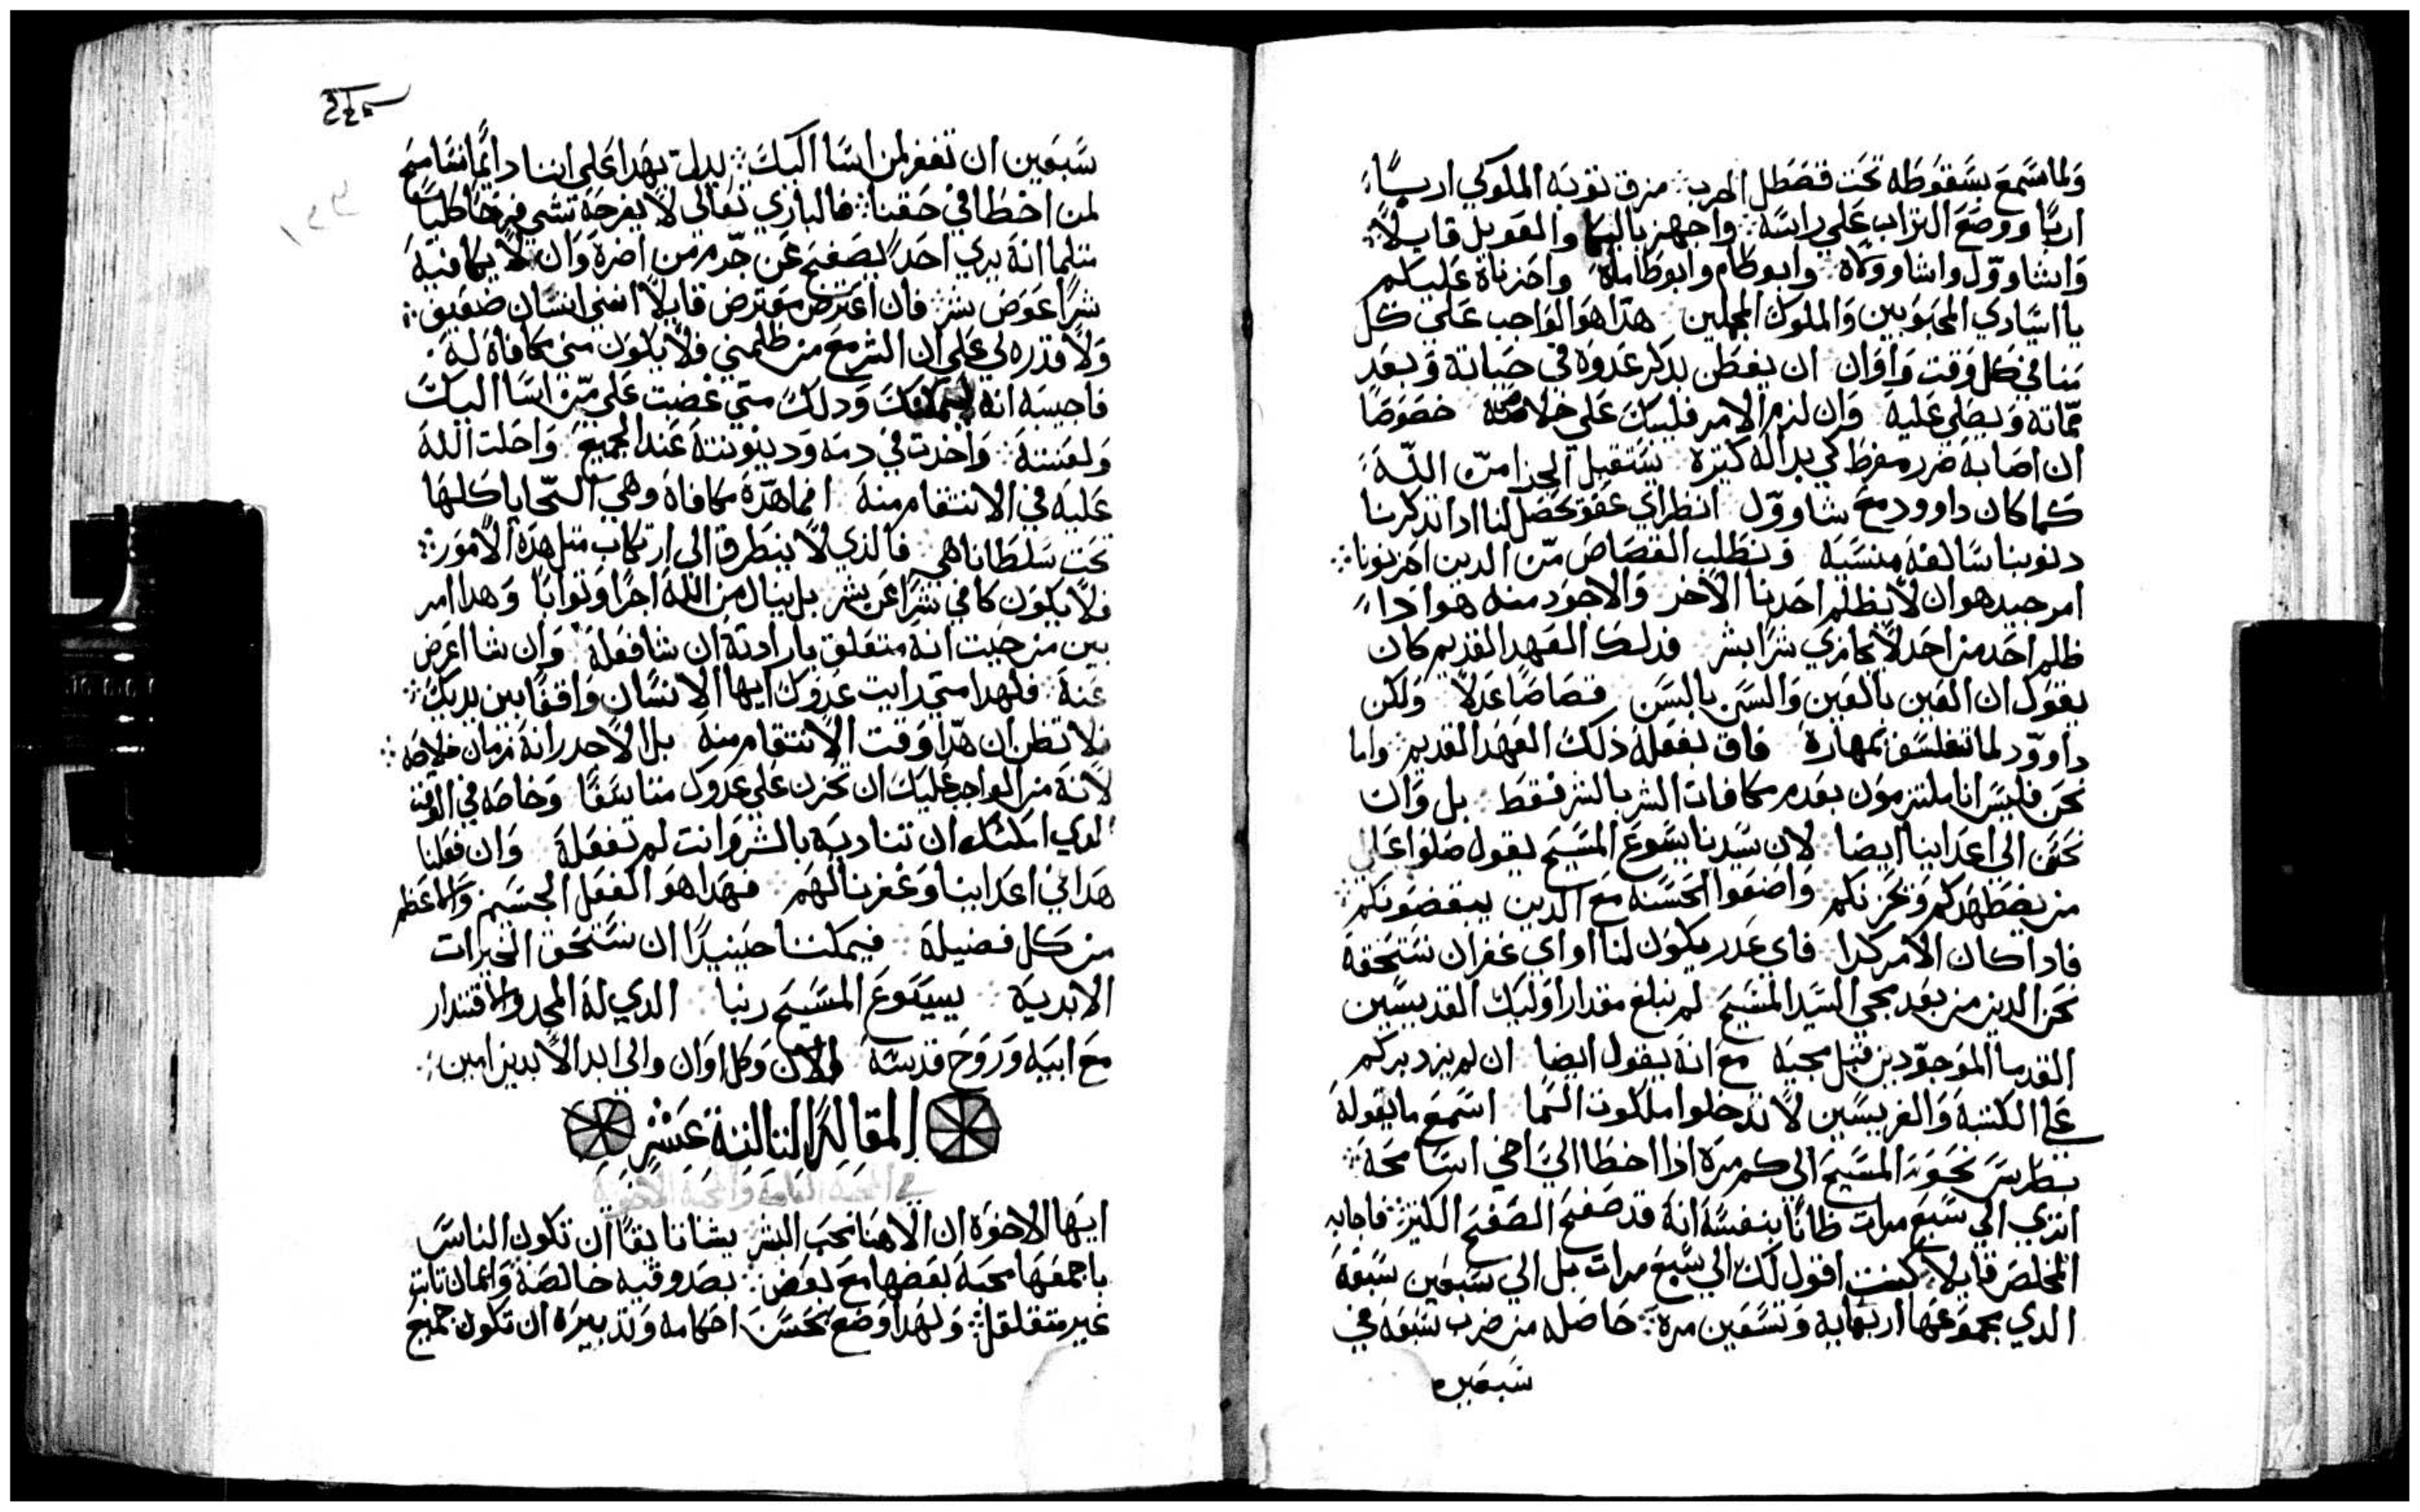 ولما سمع بسقوطه تحت قصطل الحرب مزق توبه الملوكي اربًا
اربًا ووضع التراب علي راسه واجهز بالبكا والعويل قايلاً
وابشاوول وابشاووكاه وابوطام وابوطاماه واحزناة عليكم
يا اسيادي المحبوبين والملوك المجملين هذا هو الواجب علي كل
منا في كل وقت واوان ان يفطن بدكر عدوه في حياتة وبعد
مماته ويصلي عليه وان لزم الامر فليبك علي خلاصه خصوصا
ان اصابه ضرر مفرط كي بداله كتيرة يستقبل الجزا من اللـه
كما كان داوود مع شاوول انظر اي عفو يحصل لنا ادا تدكرنا
دنوبنا سالفة منسيه ونطلب القصاص من الدين احزنونا
امر جيد هو ان لا يظلم احدنا الاخر والاجود منه هو ادا
ظلم احد من احد لا يجازي شرا بشر فدلك العهد القديم كان
يقول ان العين بالعين والسن بالسن قصاصا عدلا ولكن
داوود لما تفلسف بمهارة فاق بفعله ذلك العهد القديم واما
نحن فليس انا ملتزمون بعدم مكافات الشر بالشر فقط بل وان
نحسن الي اعداينا ايضا لان سيدنا يسوع المسيح يقول صلوا علي
من يضطهدكم ويحزنكم واصنعوا الحسنه مع الدين يبغضونكم
فادا كان الامر كدا فاي عدر يكون لنا او اي غفران نستحقه
نحن الدين من بعد مجي السيد المسيح لم نبلغ مقدار اوليك القديسين
القدما الموجودين قبل مجيه مع انه يقول ايضا ان لم يزد بركم
علي الكتبه والفريسين لا تدخلوا ملكوت السما اسمع ما يقوله
بطرس نحو المسيح الي كم مرة اذا اخطا الي اخي اسامحه
اتري الي سبع مرات ظانًا بنفسه انه قد صفح الصفح الكتير فاجابه
المخلص قايلا لست اقول لك الي سبع مرات بل الي سبعين سبعة
الدي مجموعها اربعمايه وتسعين مرة حاصله من ضرب سبعه في
سبعين
سبعين ان تغفر لمن اسا اليك يدل بهدا علي اننا دايمًا نسامح
لمن اخطا في حقنا فالباري تعالي لا يفرحه شي
متلما انه يري احدًا يصفح عن جرم من اضره وان لا يكافيه
شرًا عوض شر فان اعترض معترض قايلاً انني انسان ضعيف
ولا قدره لي علي ان الشر مع من ظلمني ولا يكون مني مكافاة له
فاجيبه انه يمكنك ودلك متي غضبت علي من اسا اليك
ولعنته واخدت في دمه ودينونته عند الجميع واحلت الله
عليه في الانتقام منه افما هذه مكافاة وهي السجايا كلها
تحت سلطانا هي فالذي لا يتطرق الي ارتكاب متل هذه الامور
فلا يكون كافي شرًا عن شر بل ينال من الله اجرًا وتوابا وهدا امر
بين من حيت انه متعلق بارادته ان شا فعله وان شا اعرض
عنه فلهدا متي رايت عدوك ايها الانسان واقفًا بين يديك
فلا تظن ان هدا وقت الانتقام منه بل الاحدر انه زمان خلاصه
لانه من الواجب عليك ان تحزن علي عدوك متاسفًا وخاصه في الوقت
الدي امكنك ان تناديه بالشر وانت لم تفعله وان فعلنا
هدا في اعداينا وغفرنا لهم فهدا هو الفعل الجسيم والاعظم
من كل فضيلة فيمكننا حينيدًا ان نستحق الخيرات
الابدية بيسوع المسيح ربنا الدي له المجد والاقتدار
مع ابيه وروح قدسه الان وكل اوان والي ابد الابدين امين
المقالة التالتة عشر
في المحبة
ايها الاخوة ان الاهنا يحب البشر يشانا بقا ان تكون الناس
باجمعها محبة بعضها مع بعض بصدوقيه خالصة وايمان تابت
غير متقلقل ولهدا وضع بحسن احكامه وتدبيره ان تكون جميع